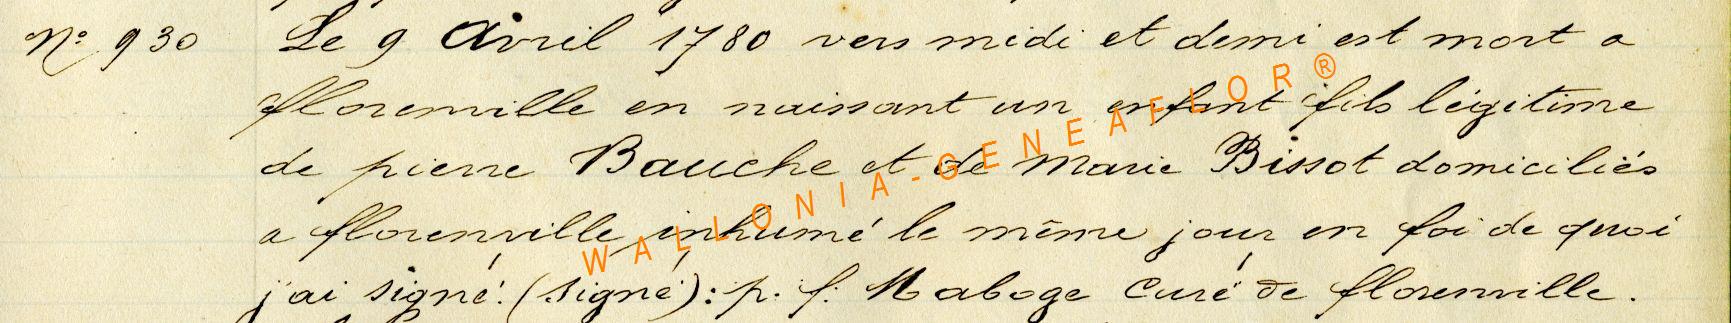 N° 930 Le 9 Avril 1780 vers midi et demi est mort a
florenville en naissant un enfant fils légitime
de pierre Bauche et de Marie Bissot domiciliés
a florenville, inhumé le même jour en foi de quoi
j'ai signé. (signé): p. f. Maboge Curé de florenville.
WALLONIA-GENEAFLOR®